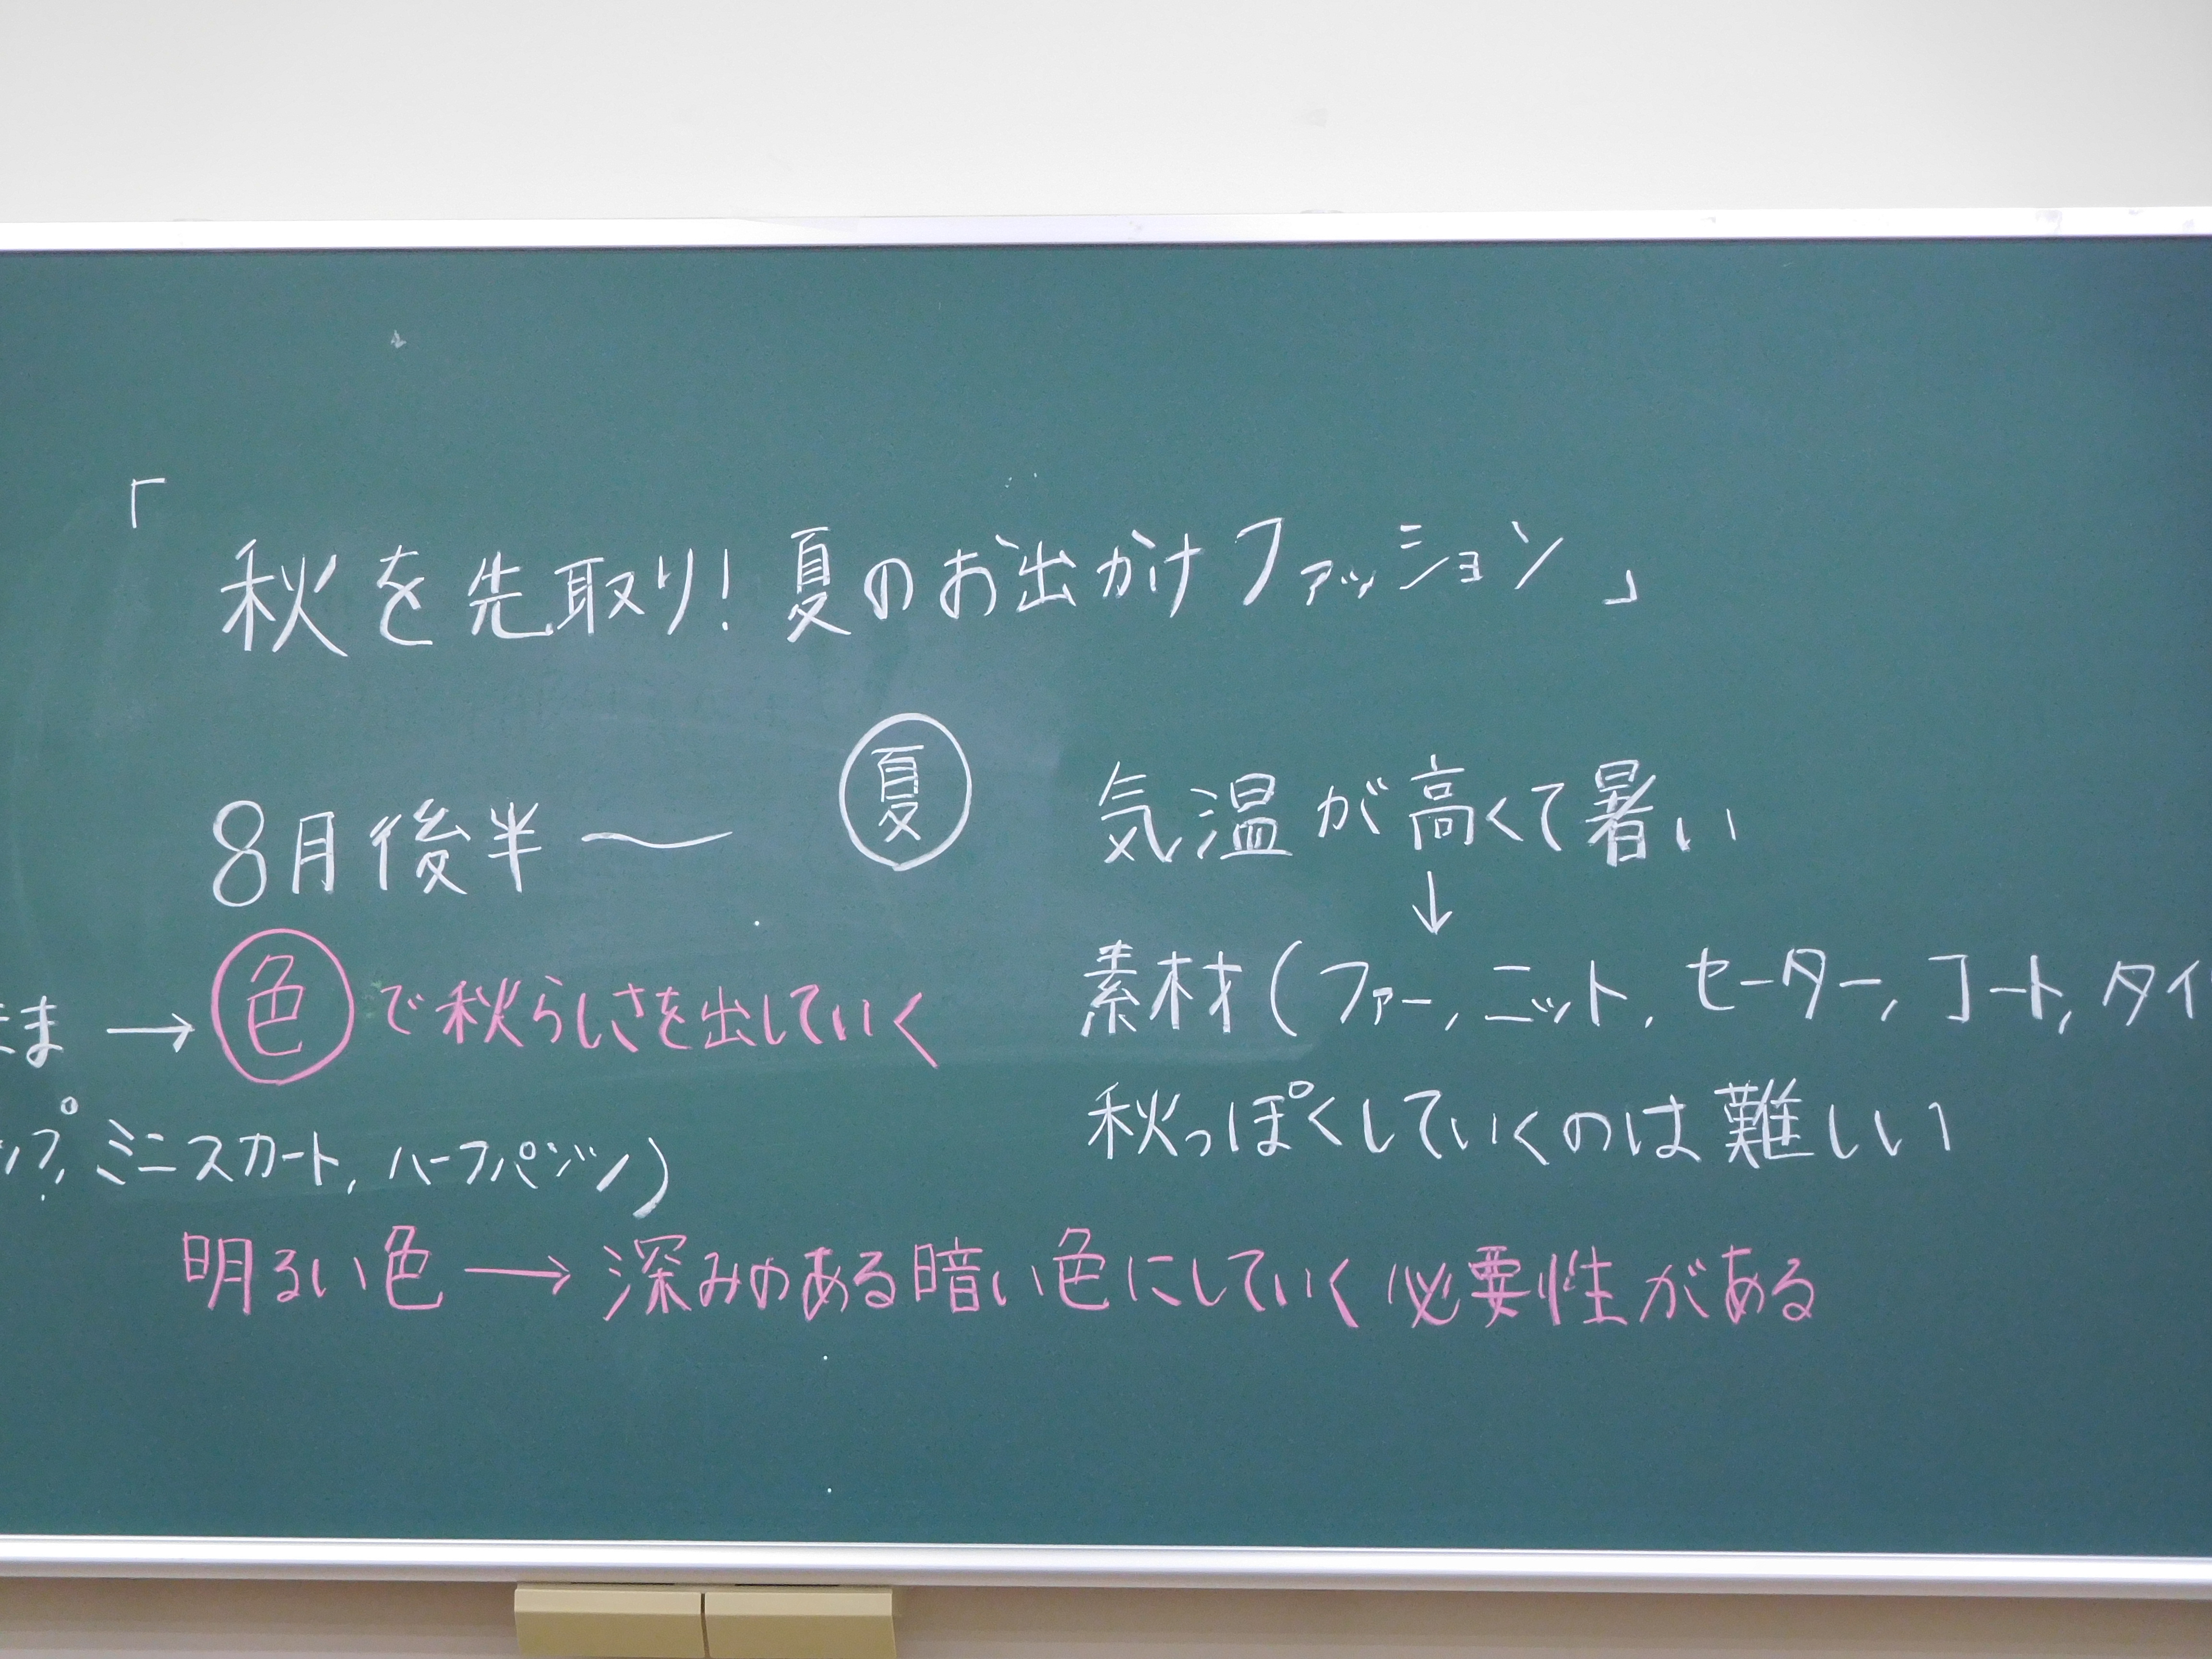 「秋を先取り!夏のお出かけファッション」
8月後半〜 夏 気温が高くて暑い
↓
まま → 色で秋らしさを出していく
素材(ファー,ニット,セーター,コート,タイ
ップ,ミニスカート,ハーフパンツ)
秋っぽくしていくのは難しい
明るい色→深みのある暗い色にしていく必要性がある